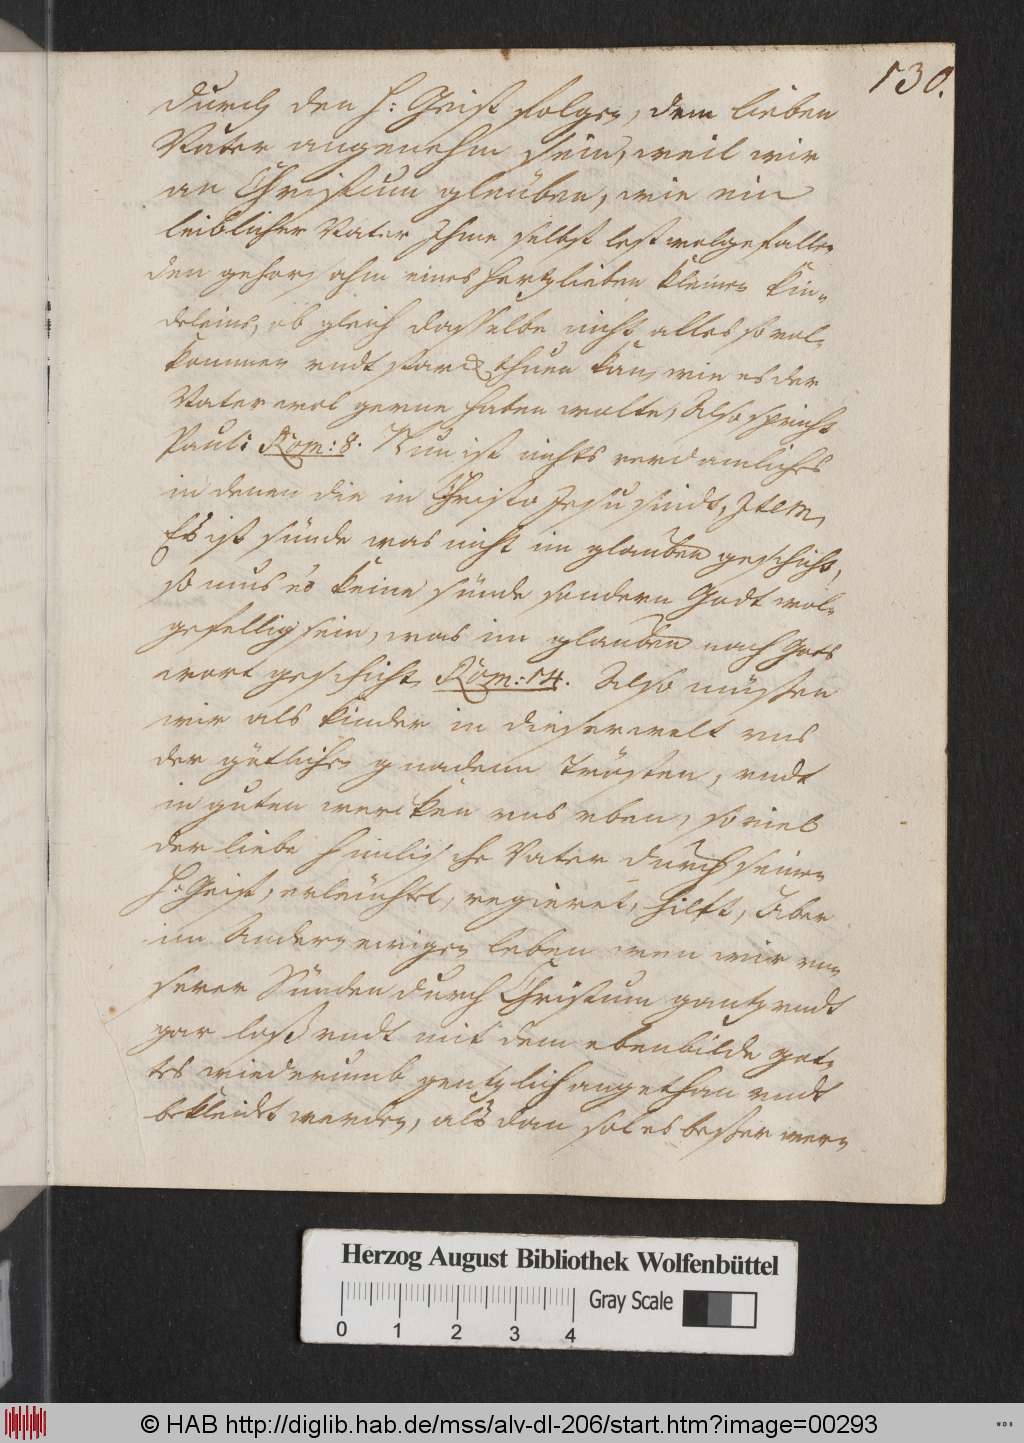 130.
durch den H: Geist folgen, dem lieben
Vater angenehm sein, weil wir
an Christum gleüben, wie ein
leiblicher Vater Ihme selbst lest wolgefallen
den gehorsahm eines hertzlieben kleinen Kin=
deleins, ob gleich dasselbe nicht alles so vol=
kommen undt starck thuen kan, wie es der
Vater wol gerne haben wolte, Also spricht
Paul: Rom: 8. Nun ist nichts verdamliches
in denen die in Christo Jesu sindt, Item,
Es ist sünde was nicht im glauben geschicht,
so mus es keine sünde sondern Godt wol=
gefellig sein, was im glauben nach Gots
wort geschicht, Röm: 14. Also müssen
wir als kinder in dieser welt uns
der götlichen gnadenn trösten, undt
in guten wercken uns eben, so viel
der liebe himlische Vater durch seinen
H: Geist, erleüchtet, regieret, hilft, Aber
im Andern ewigen leben wen wir un=
serer Sünden durch Christum gantz undt
gar loß undt mit dem ebenbilde got=
tes wiederumb gentzlich angethan undt
bekleidt werden, als dan sol es besser wer=
Herzog August Bibliothek Wolfenbüttel
Gray Scale
0 1 2 3 4
© HAB http://diglib.hab.de/mss/alv-dl-206/start.htm?image=00293